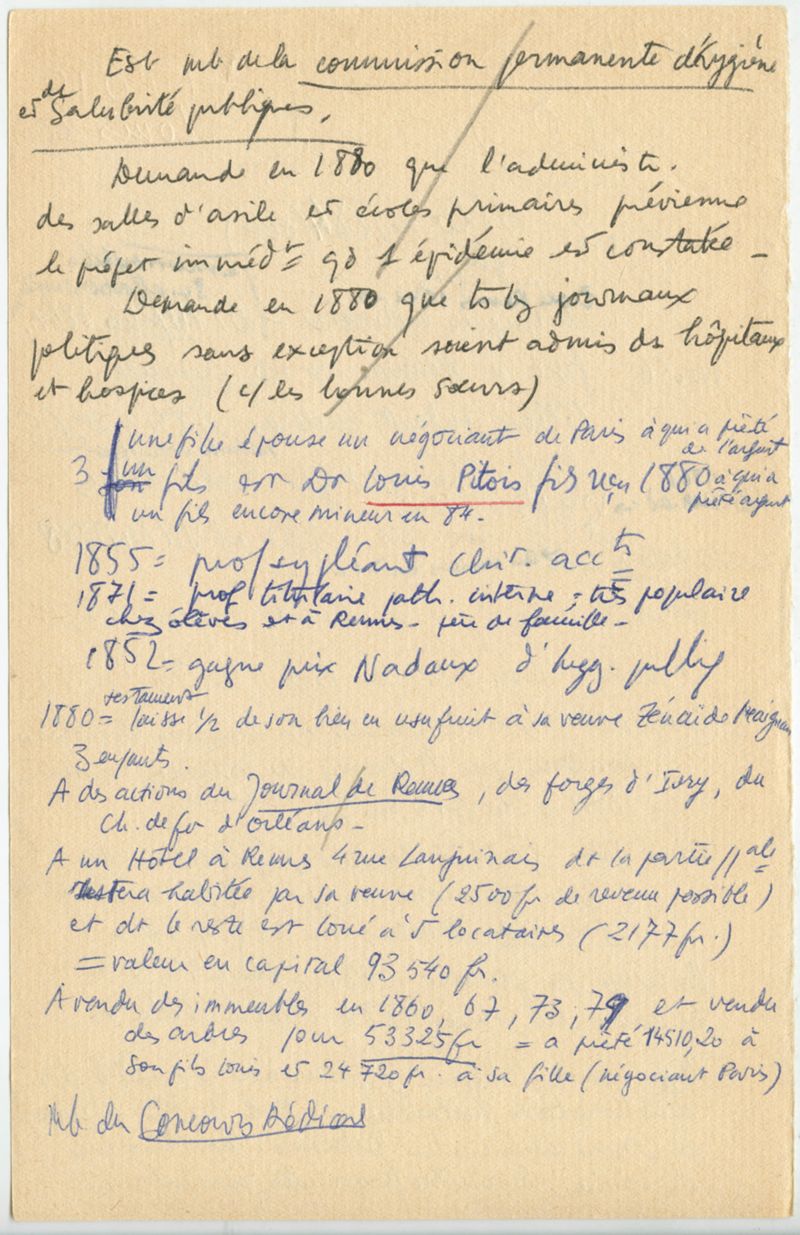 Est mb de la commission permanente d'Hygiène
et de Salubrité publiques.
Demande en 1880 que l'administr.
des salles d'asile et écoles primaires prévienne
le préfet imméd^t qd 1 épidémie est constatée _
Demande en 1880 que ts ls journaux
politiques sans exception soient admis ds hôpitaux
et hospices (c/ les bonnes sœurs)
une fille épouse un négociant de Paris à qui a prêté de l'argent
3 un fils est Dr Louis Pitois fils reçu 1880 à qui a prêté argent
un fils encore mineur en 84.
1855 = prof suppléant chir. acc^ts
1871 = prof titulaire path. interne = très populaire
chez élèves et à Rennes - père de famille -
1852 = gagne prix Nadaux d'hyg. publiq
1880 = testament laisse 1/2 de son bien en usufruit à sa veuve Zénaïde
3 enfants.
A des actions du Journal de Rennes, des forges d'Ivry, du
Ch. de fer d'Orléans -
A un Hôtel à Rennes 4 rue Lanjuinais dt la partie ppale
restera habitée par sa veuve (2500 fr de revenu possible)
et dt le reste est loué à 5 locataires (2177 fr.)
= valeur en capital 93 540 fr.
A vendu des immeubles en 1860, 67, 73, 79 et vendu
des arbres pour 53325 fr = a prêté 14510,20 à
son fils Louis et 24 720 fr. à sa fille (négociant Paris)
Mb du Concours Médical